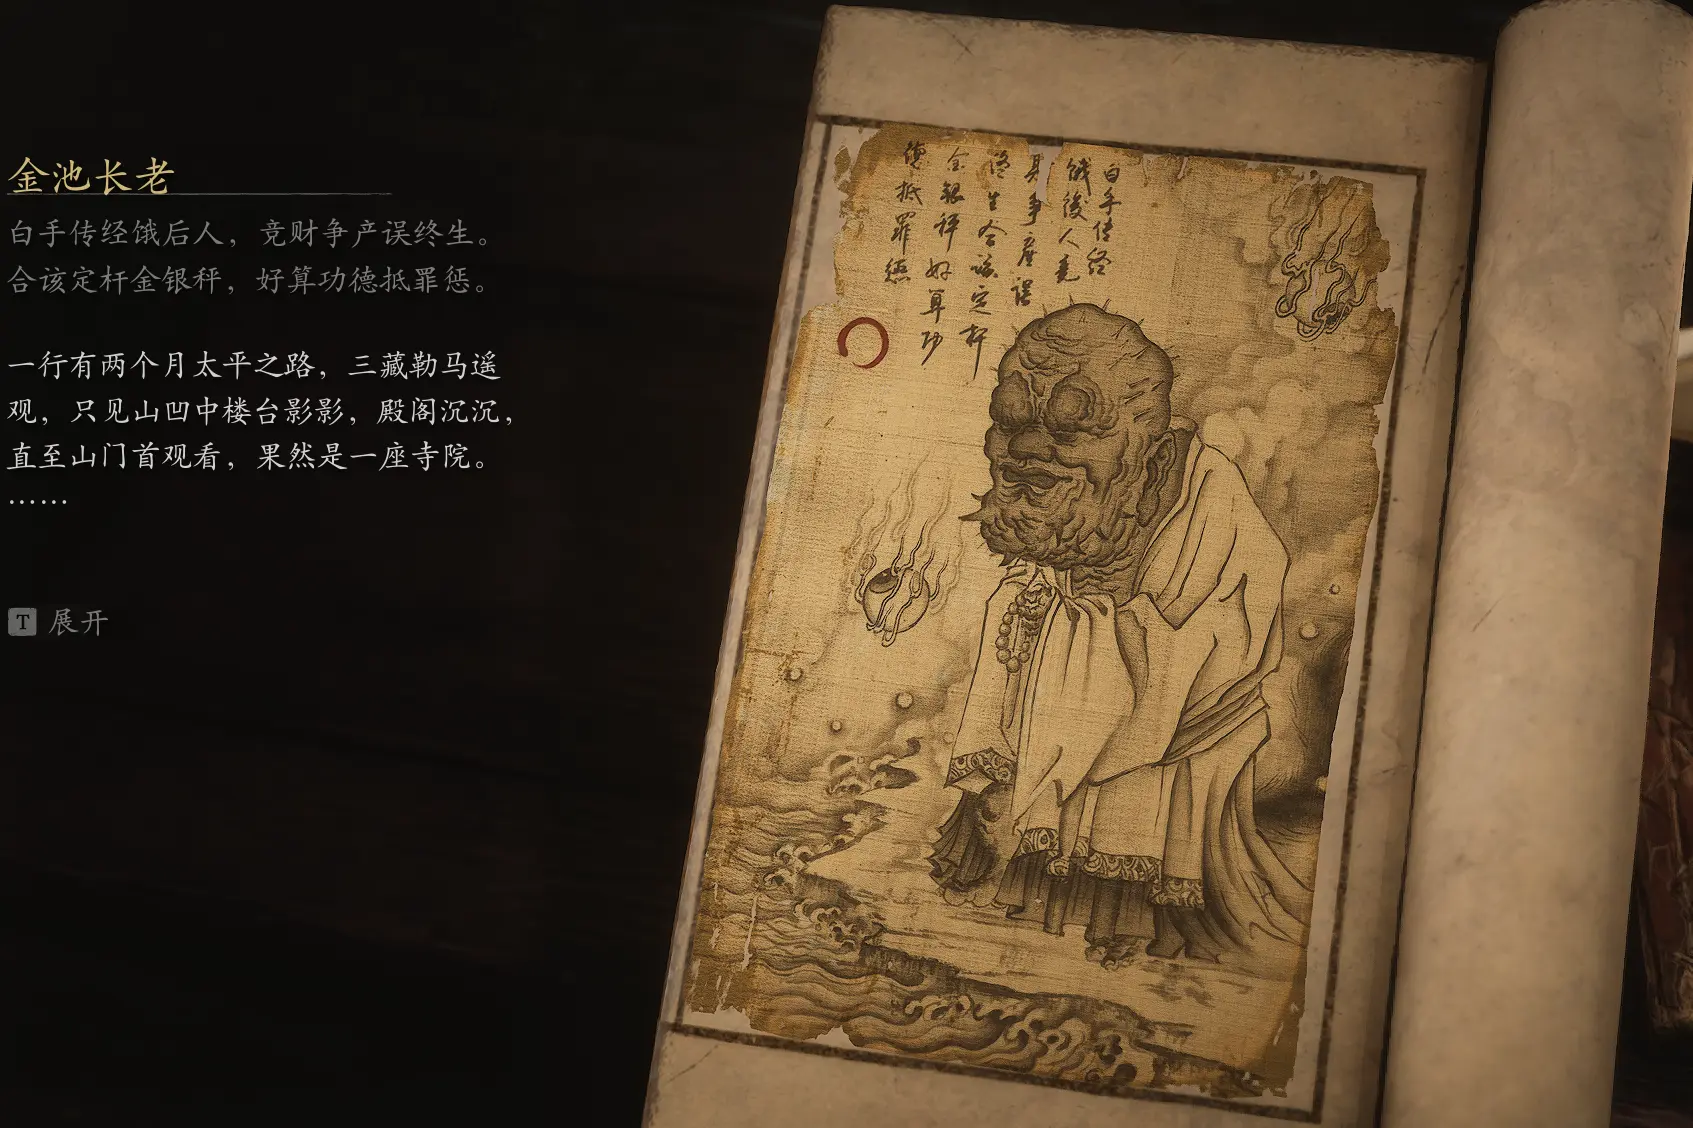 金池长老
白手传经饿后人，竞财争产误终生。
合该定杆金银秤，好算功德抵罪惩。
一行有两个月太平之路，三藏勒马遥
观，只见山凹中楼台影影，殿阁沉沉，
直至山门首观看，果然是一座寺院。
……
T 展开
白手传经
饿後人竞
财争产误
终生合该定杆
金银秤好算功
德抵罪惩